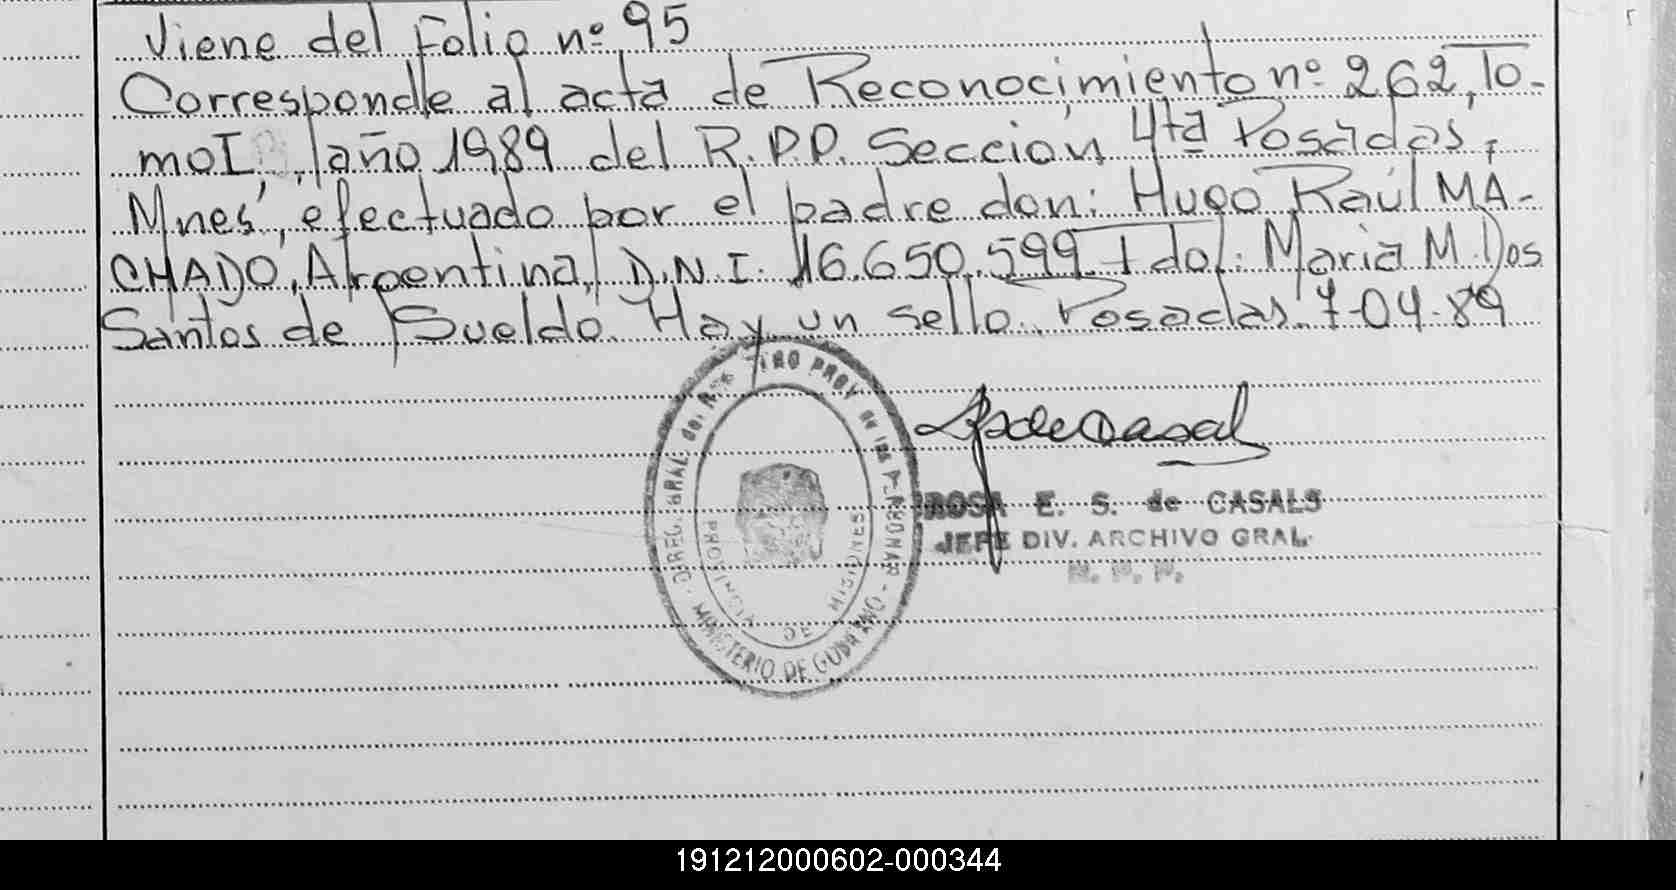 Viene del Folio nº 95
Corresponde al acta de Reconocimiento nº 262, To-
mo I, año 1989 del R.P.P. Sección 4ta Posadas,
Mnes, efectuado por el padre don: Hugo Raúl MA-
CHADO, Argentina, D.N.I. 16.650.599 Fdo/: Maria M. Dos
Santos de Sueldo. Hay un sello. Posadas 7-04-89
DIREC. GRAL. del PROV de las
MINISTERIO DE GOBIERNO
PROVINCIA DE MISIONES
ROSA E. S. de CASALS
JEFE DIV. ARCHIVO GRAL.
191212000602-000344